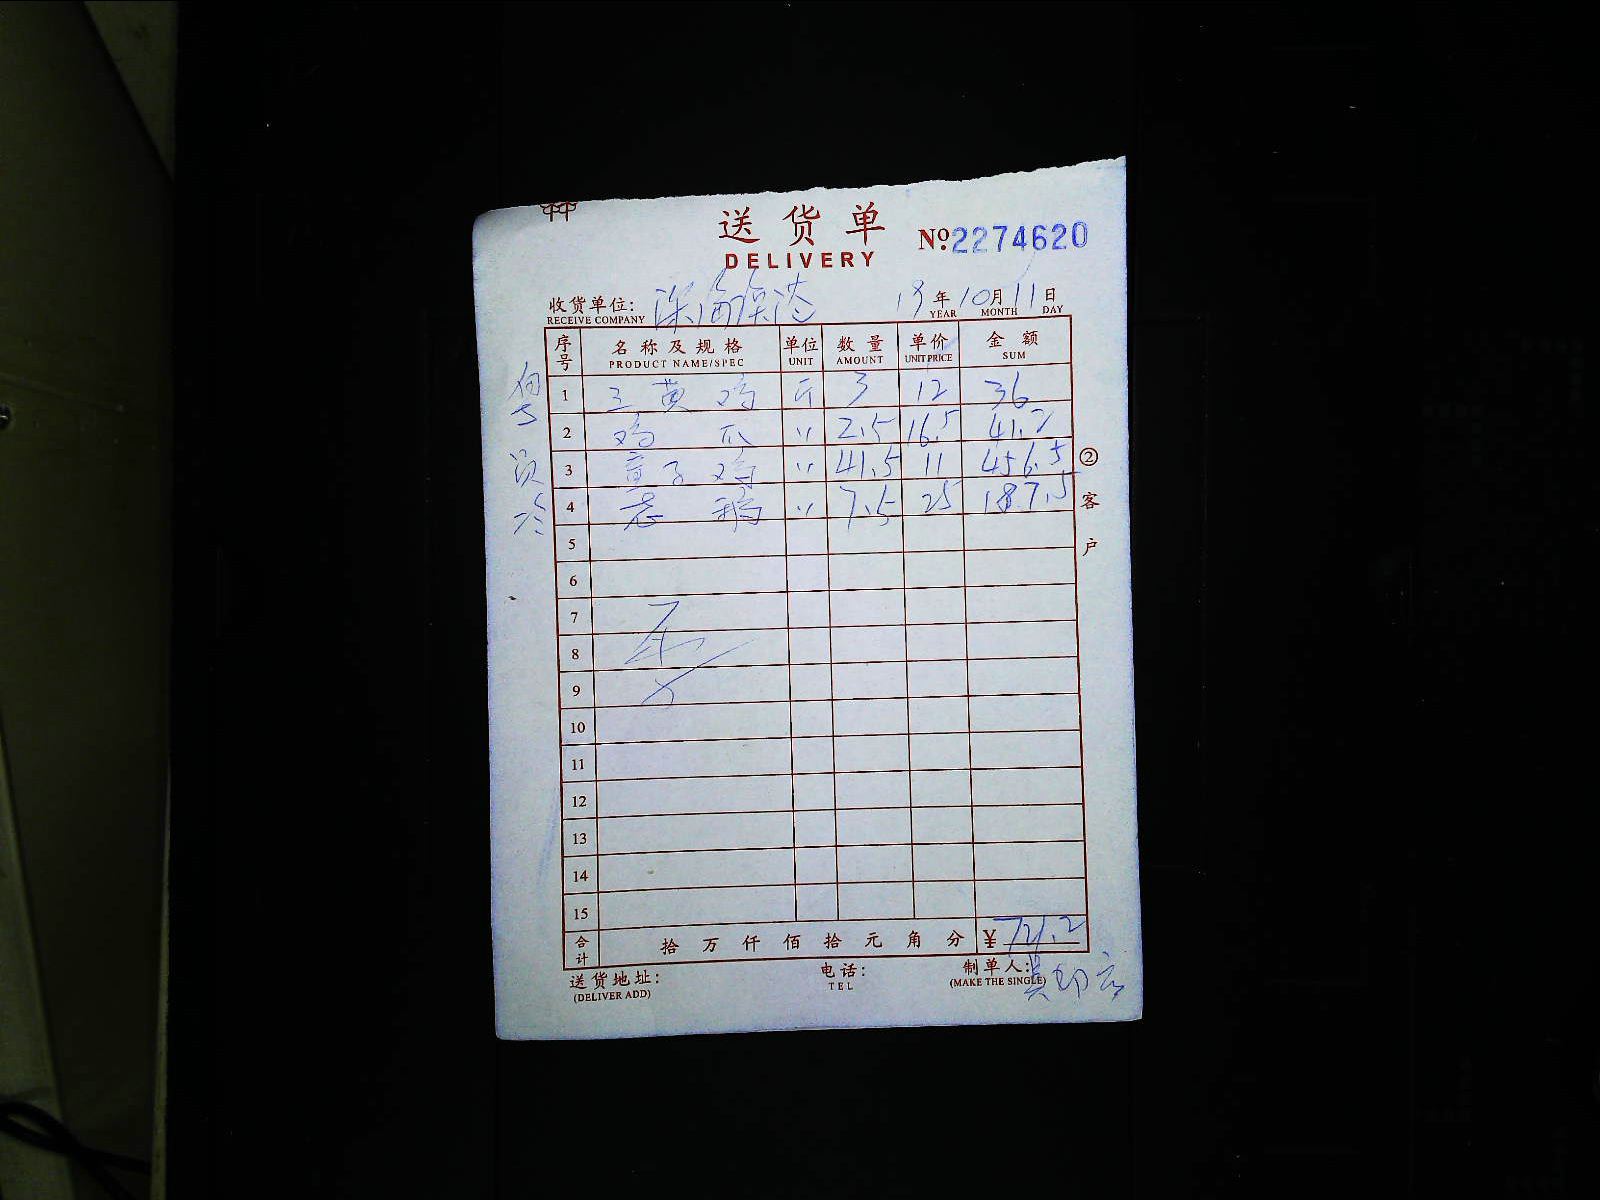 送货单
№ 2274620
DELIVERY
收货单位: 深海深港 19年10月11日
RECEIVE COMPANY YEAR MONTH DAY
序号 名称及规格 单位 数量 单价 金额
PRODUCT NAME/SPEC UNIT AMOUNT UNIT PRICE SUM
1 三黄鸡 斤 3 12 36
2 鸡爪 〃 2.5 16.5 41.2
3 童子鸡 〃 41.5 11 456.5
4 老鹅 〃 7.5 25 187.5
5
6
7
8
9
10
11
12
13
14
15
合计 拾万仟佰拾元角分 ¥721.2
送货地址: 电话: 制单人:
(DELIVER ADD) TEL (MAKE THE SINGLE)
②客户